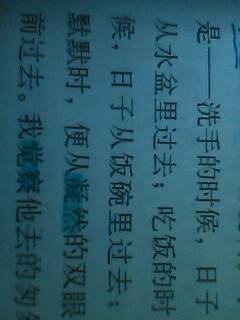 是——洗手的时候，日子
从水盆里过去；吃饭的时
候，日子从饭碗里过去；
默默时，便从凝然的双眼
前过去。我觉察他去的匆